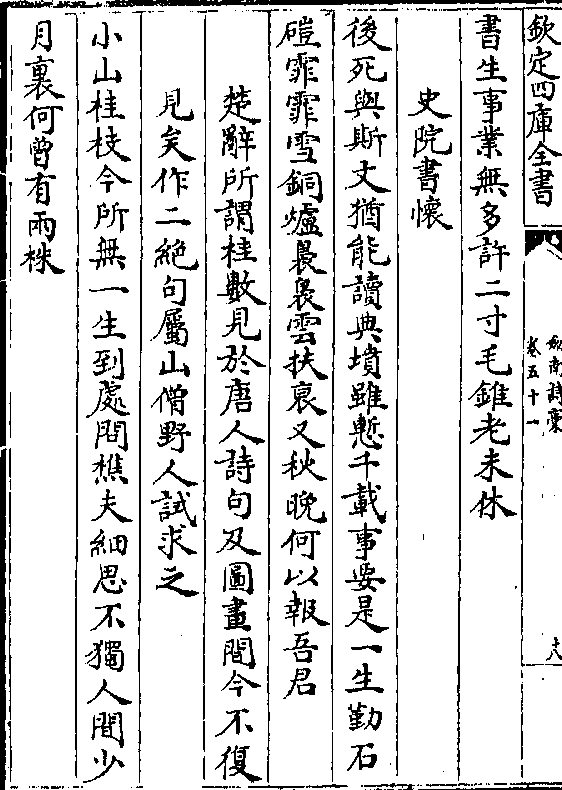 欽定四庫全書
劍南詩稾
卷五十一
十八
書生事業無多許二寸毛錐老未休
史院書懷
後死與斯文猶能讀典墳雖慙千載事要是一生勤石
磑霏霏雪銅爐裊裊雲扶衰又秋晚何以報吾君
楚辭所謂桂數見於唐人詩句及圖畫間今不復
見矣作二絶句屬山僧野人試求之
小山桂枝今所無一生到處問樵夫細思不獨人間少
月裏何曾有兩株